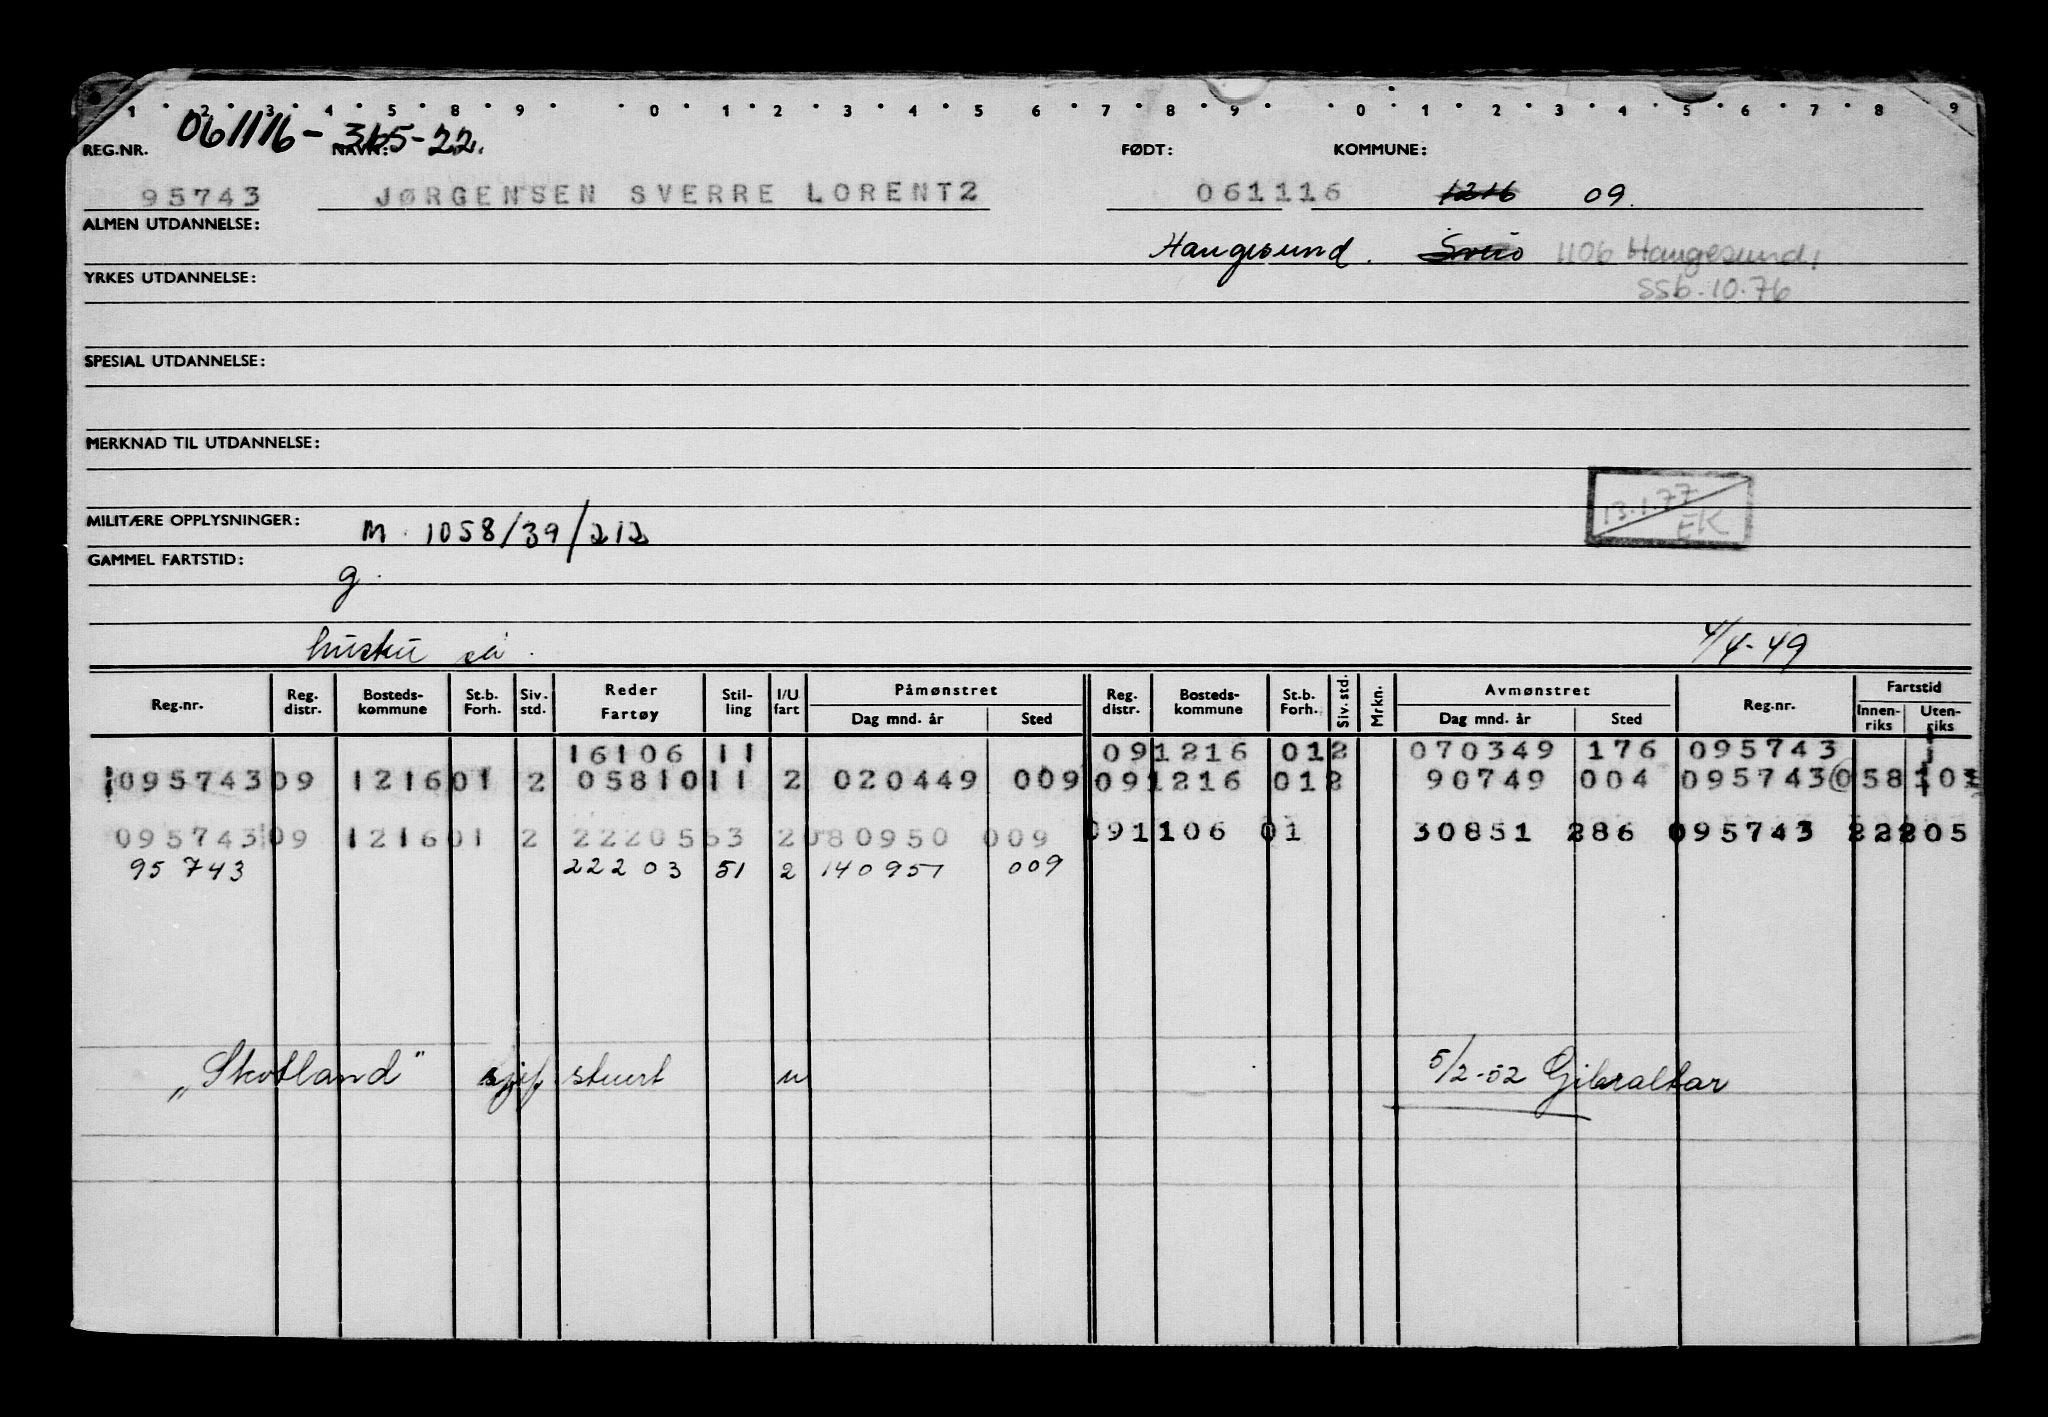 1 2 3 4 5 8 9 0 1 2 3 4 5 6 7 8 9 0 1 2 3 4 5 6 7 8 9
061116-315-22.
REG.NR. NAVN: FØDT: KOMMUNE:
95743 JØRGENSEN SVERRE LORENTZ 061116 1216 09.
ALMEN UTDANNELSE:
Haugesund. Sveio 1106 Haugesund,
YRKES UTDANNELSE:
ssb.10.76
SPESIAL UTDANNELSE:
MERKNAD TIL UTDANNELSE:
13.1.77
EK
MILITÆRE OPPLYSNINGER: M. 1058/39/212
GAMMEL FARTSTID:
g.
4/4-49
Reg.nr. Reg. distr. Bosteds- kommune St.b. Forh. Siv. std. Reder Fartøy Stil- ling I/U fart Påmønstret Dag mnd. år Sted Reg. distr. Bosteds- kommune St.b. Forh. Siv. std. Mrkn. Avmønstret Dag mnd. år Sted Reg.nr. Fartstid Innen- riks Uten- riks
16106 11 09 1216 01 2 070349 176 095743
095743 09 1216 01 2 05810 11 2 020449 009 09 1216 01 2 90749 004 095743 058 10
095743 09 1216 01 2 22205 63 2 080950 009 09 1106 01 30851 286 095743 22205
95743 22203 51 2 140951 009
"Skotland" stuert u 5/2-52 Gibraltar